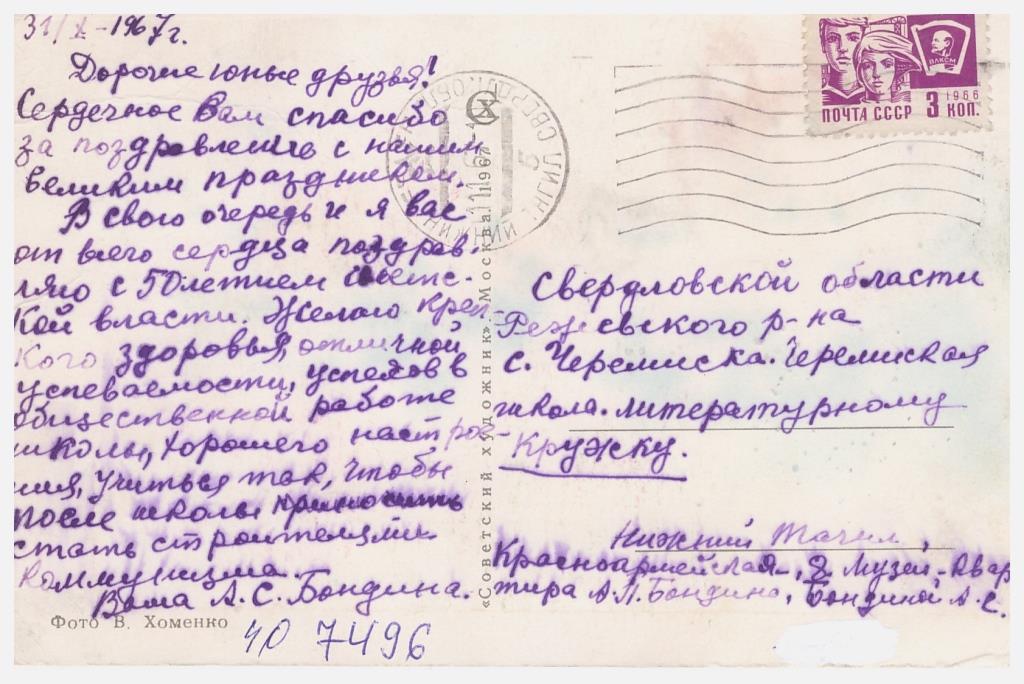 31/X-1967г.
Дорогие юные друзья!
Сердечное Вам спасибо
за поздравление с нашим
великим праздником.
В свою очередь и я вас
от всего сердца поздрав-
ляю с 50летием советс-
кой власти. Желаю креп-
кого здоровья, отличной
успеваемости, успехов в
общественной работе
школы, хорошего настрое-
ния, учиться так, чтобы
после школы
стать строителями
коммунизма.
Ваша А.С. Бондина.
Фото В. Хоменко
40 7496
«Советский художник». Москва. 1967
ВЛКСМ
1966
ПОЧТА СССР 3 КОП.
Свердловской области
Режевского р-на
с. Черемисска. Черемисская
школа. Литературному
Кружку.
Нижний Тагил,
Красноармейская, 8 Музей-квар
тира А.П. Бондина, Бондиной А.С.